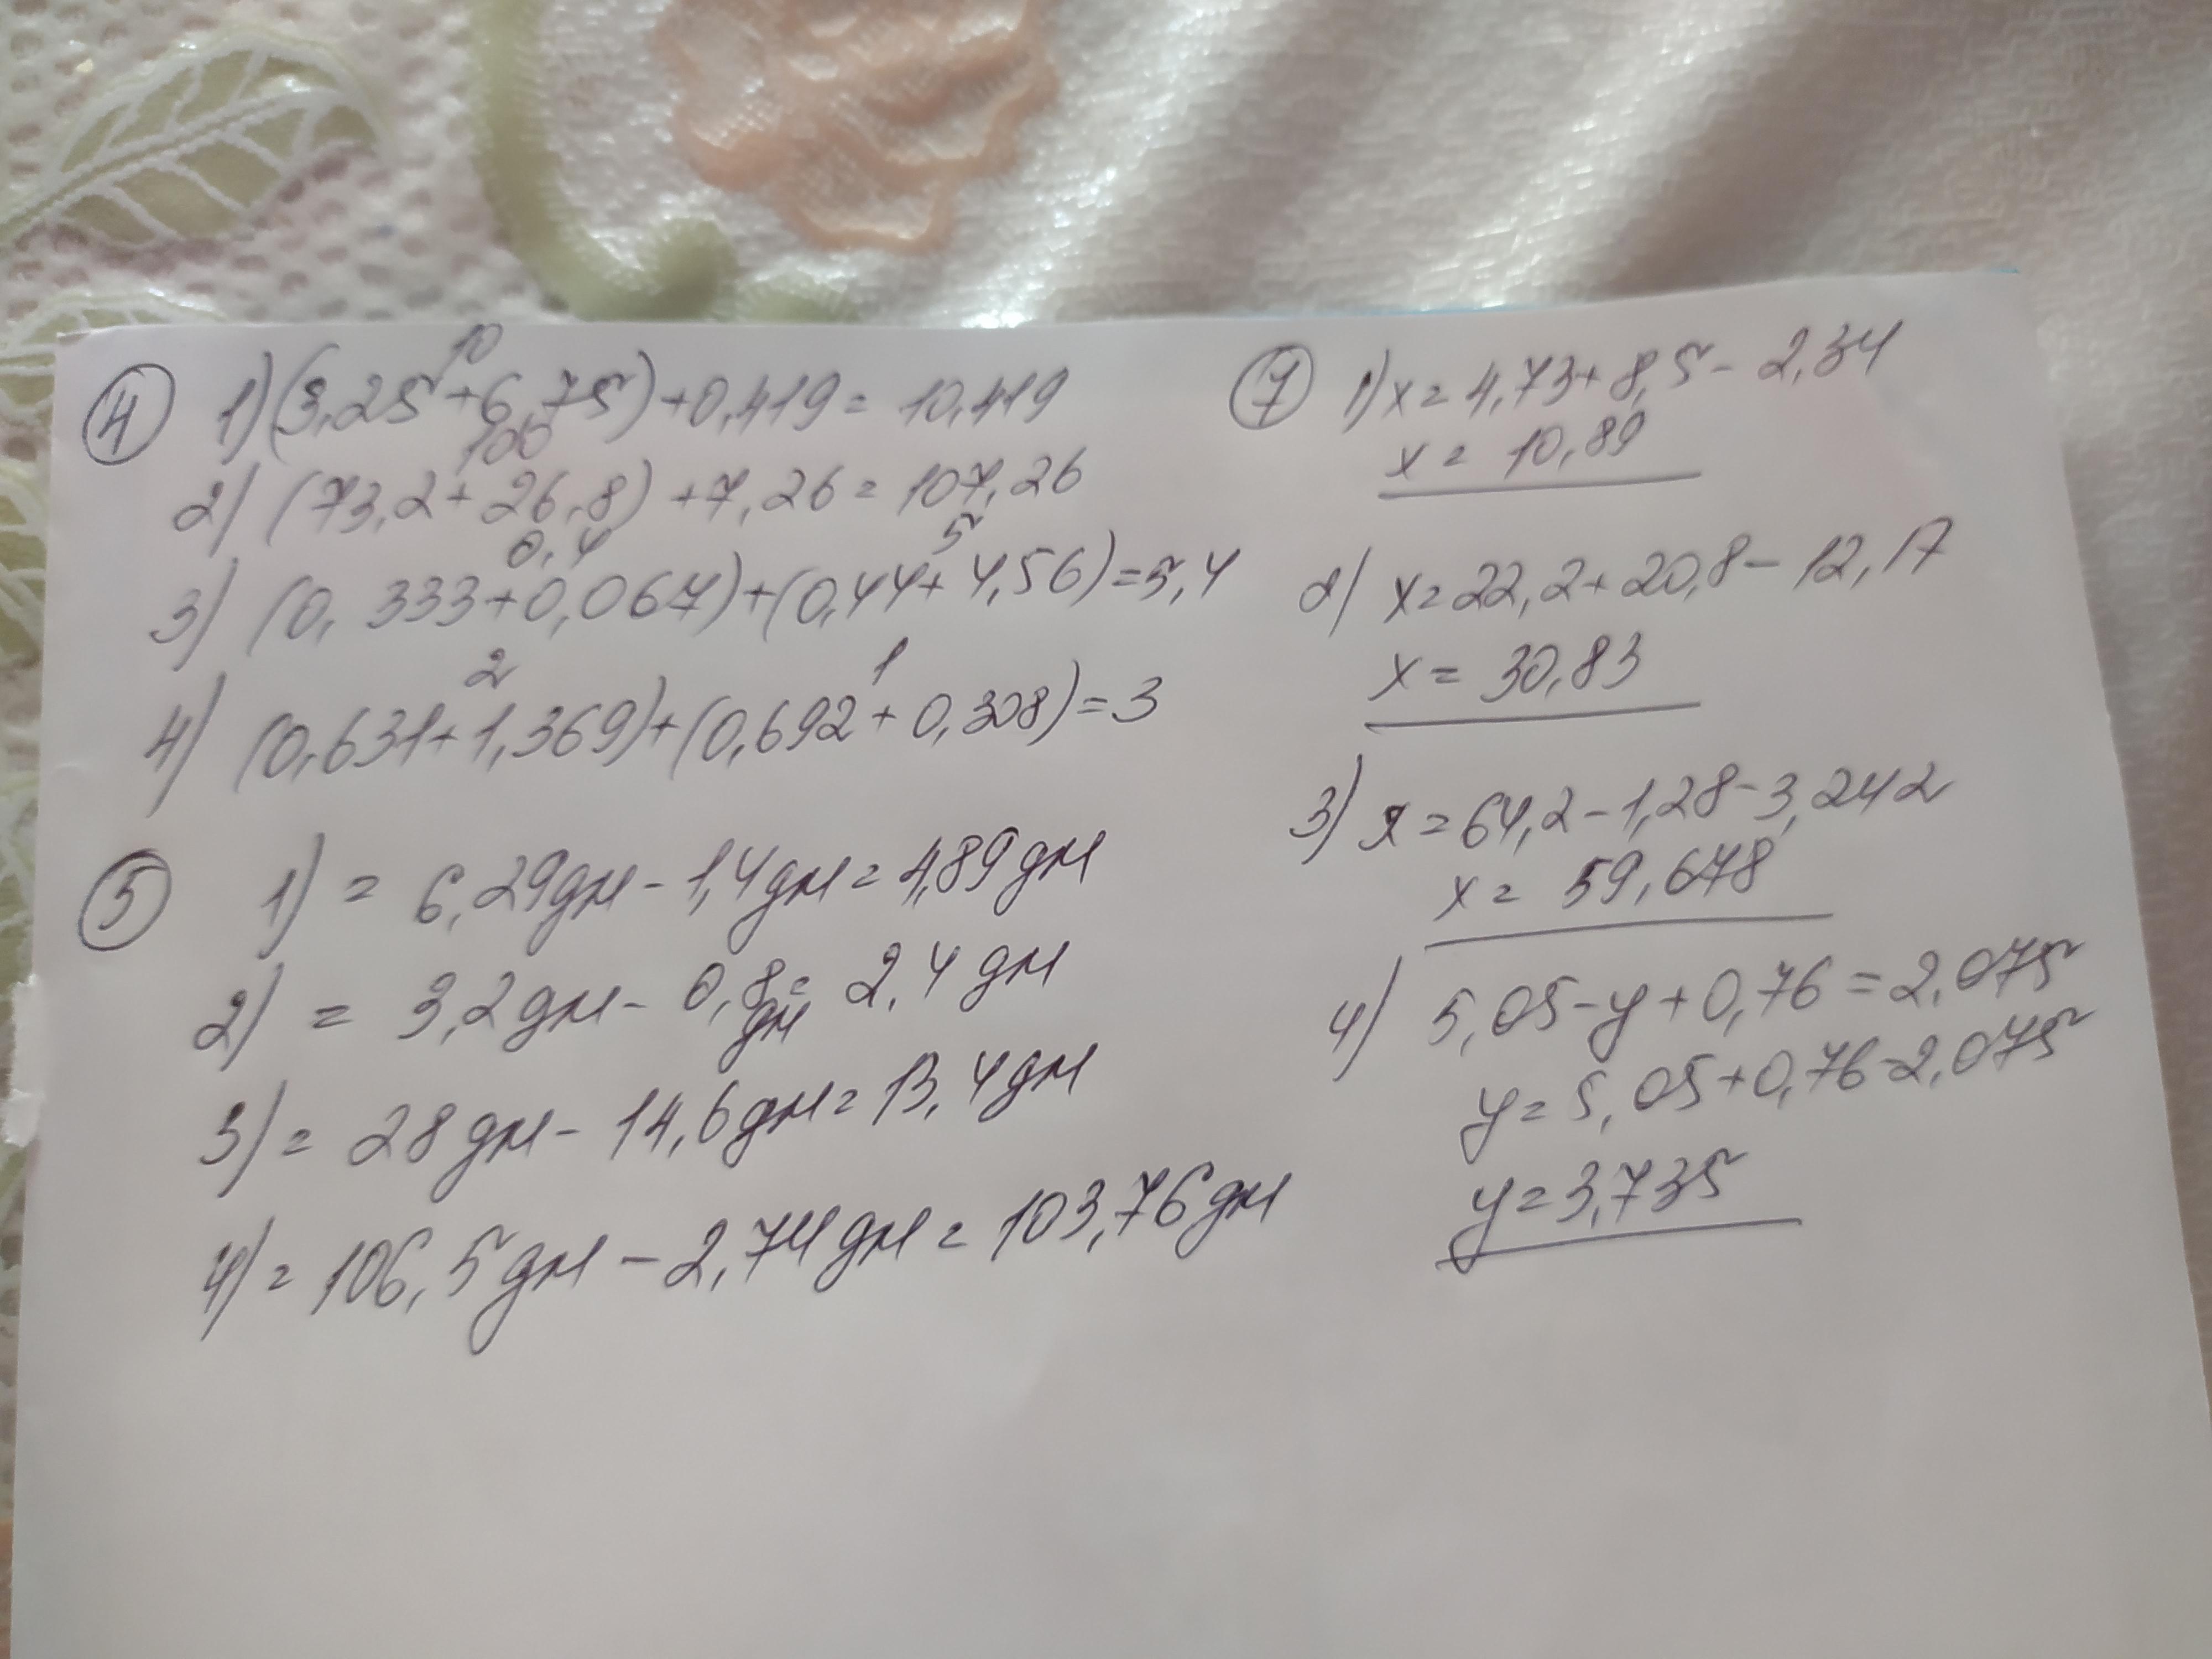 ④ 1) (3,25 + 6,75) + 0,419 = 10,419
10
2) (73,2 + 26,8) + 7,26 = 107,26
100
3) (0,333 + 0,067) + (0,44 + 4,56) = 5,4
0,4 5
4) (0,631 + 1,369) + (0,692 + 0,308) = 3
2 1
⑤ 1) = 6,29дм - 1,4дм = 4,89дм
2) = 3,2дм - 0,8 = 2,4дм
дм
3) = 28дм - 14,6дм = 13,4дм
4) = 106,5дм - 2,74дм = 103,76дм
⑦ 1) x = 4,73 + 8,5 - 2,34
x = 10,89
2) x = 22,2 + 20,8 - 12,17
x = 30,83
3) x = 64,2 - 1,28 - 3,242
x = 59,678
4) 5,05 - y + 0,76 = 2,075
y = 5,05 + 0,76 - 2,075
y = 3,735